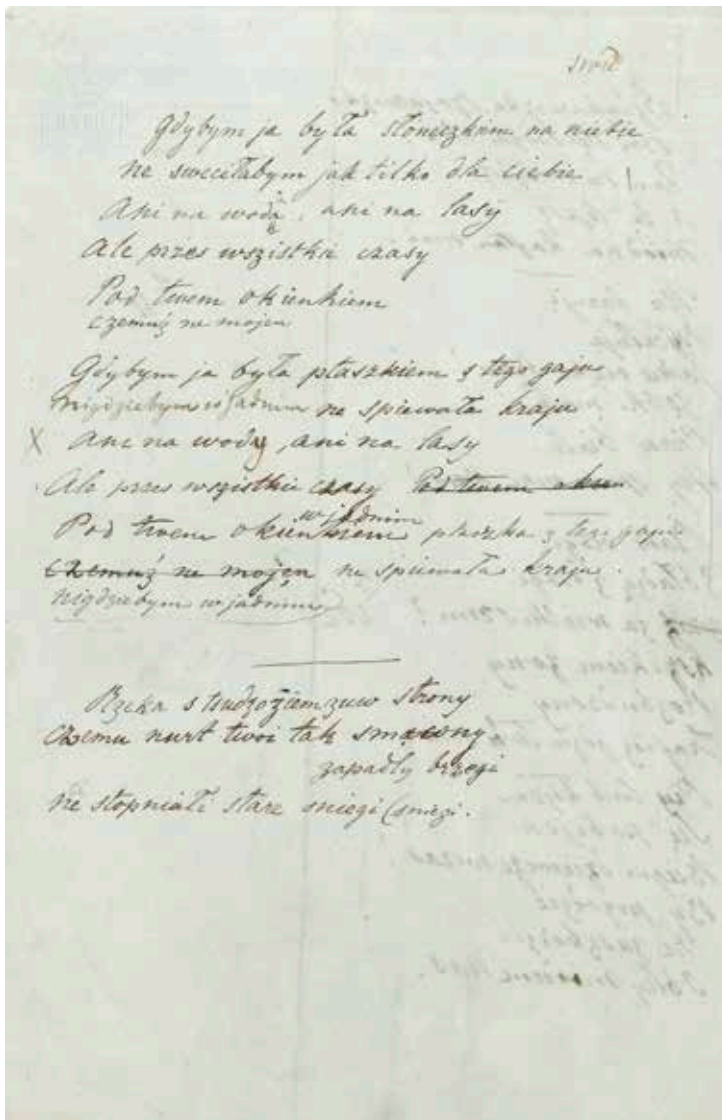 Gdybym ja była słoneczkim na niebie
ne sweciłabym jak tilko dla ciebie
Ani na wodę, ani na lasy
Ale przes wszistkie czasy
Pod twem okienkiem
czemuż ne mojen
Gdybym ja była ptaszkiem s tego gaju
nigdziebym w jadnim ne spiewała kraju
X Ani na wodę, ani na lasy
Ale przes wszistkie czasy Pod twem okien
w jadnim
Pod twem okienkiem ptaszka z tego gaju
czemuż ne mojen ne spiewała kraju.
nigdziebym w jadnim
Rzeka s tsudzoziemzuw strony
Czemu nurt twoi tak smąwny
zapadly brzegi
ne stopniali stare sniegi (sniezi.